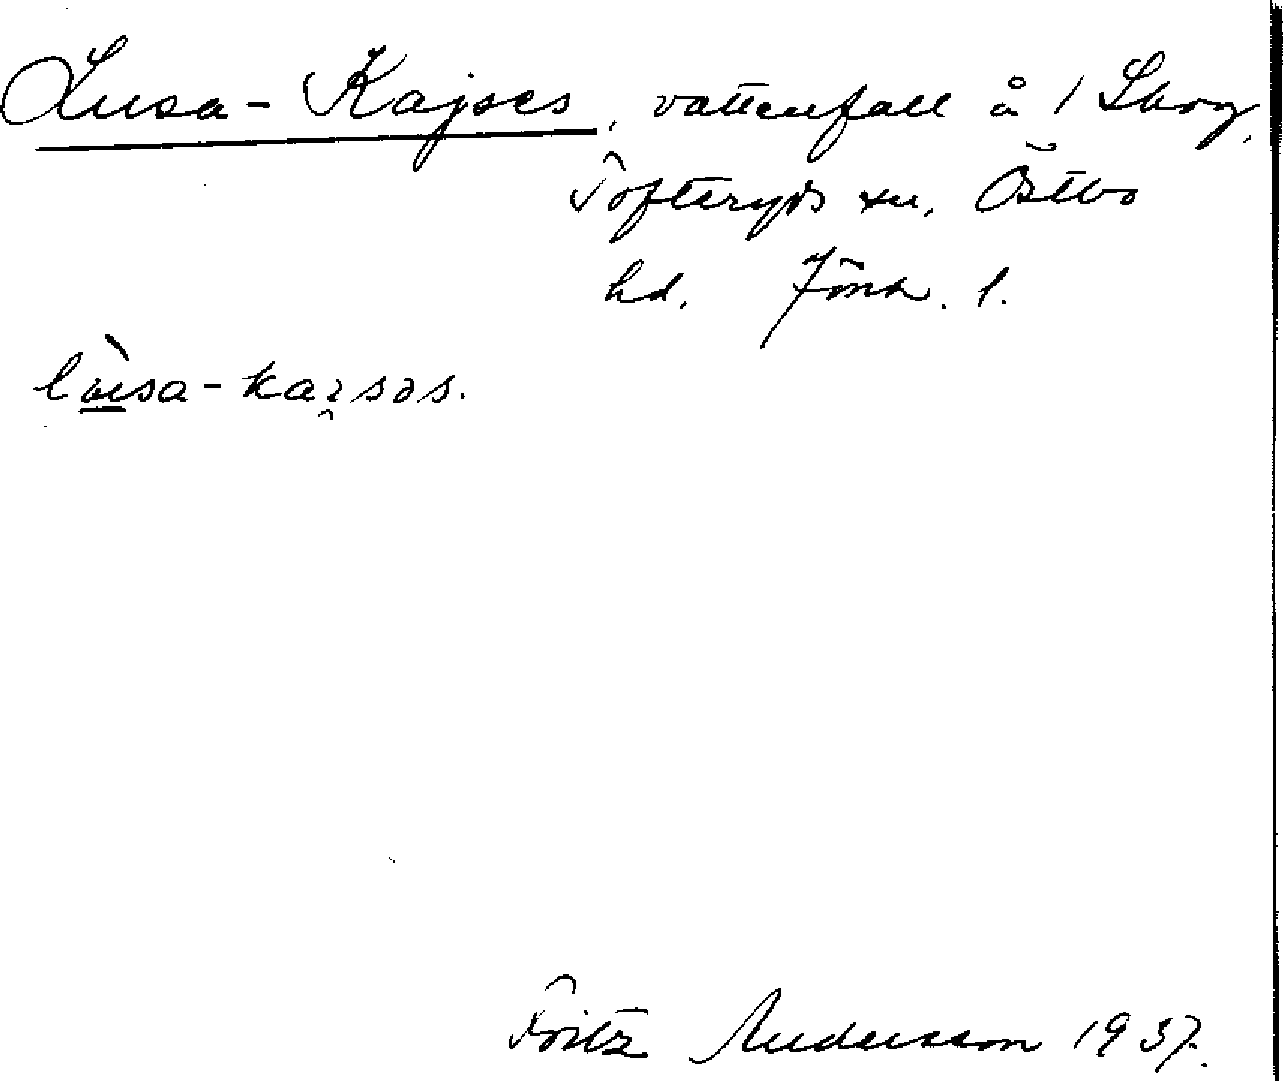 Lusa-Kajses, vattenfall å 1 Skog,
Tofteryds sn, Östbo
hd. Jönk. l.
lùsa-kai̯səs.
Fritz Andersson 1937.